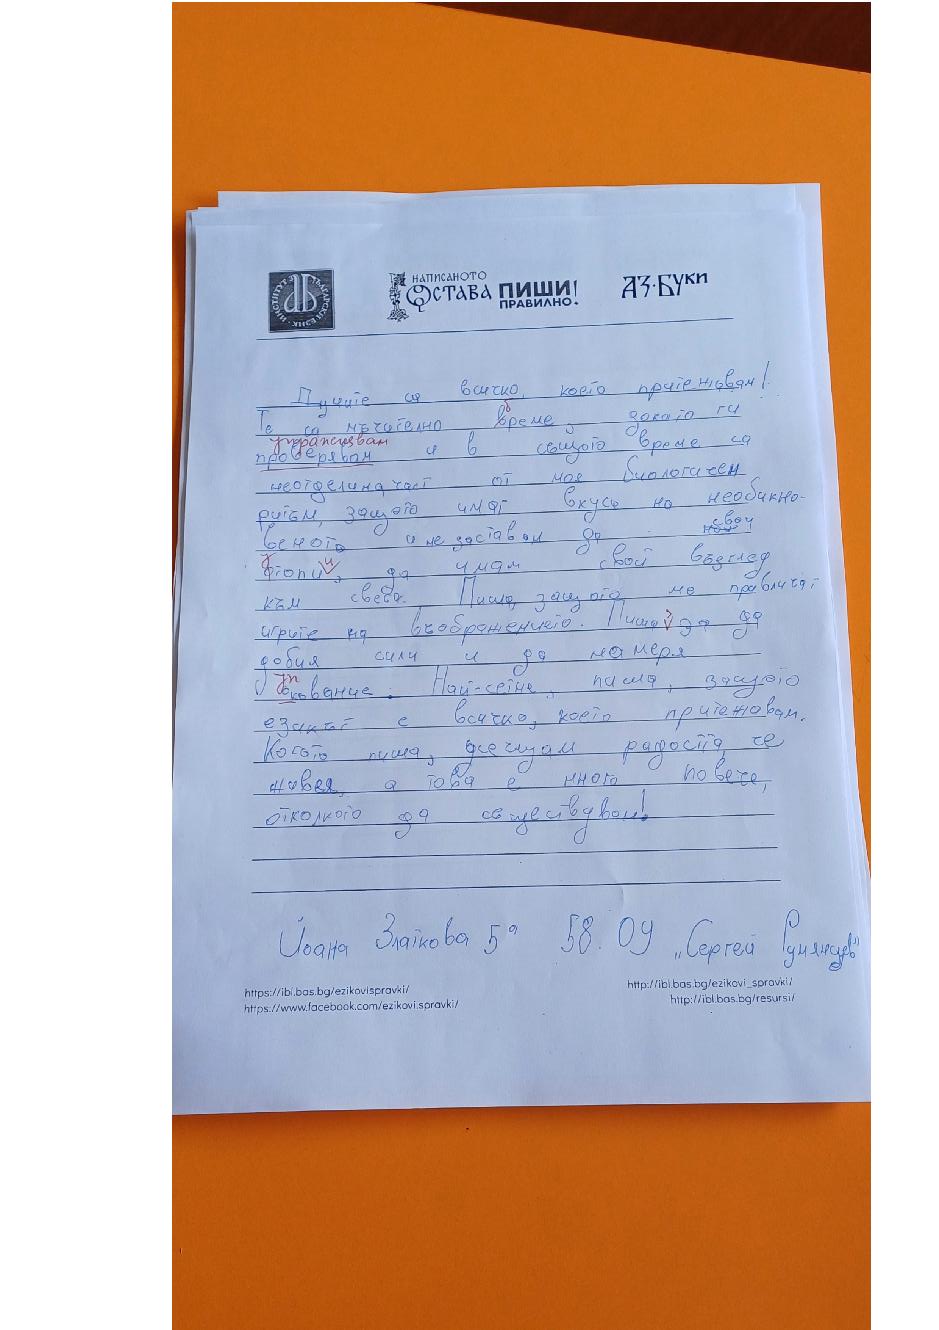 ИНСТИТУТ ЗА БЪЛГАРСКИ ЕЗИК
НАПИСАНОТО
ОСТАВА ПИШИ
ПРАВИЛНО!
АЗ·БУКИ
Думите са всичко, което притежавам!
б
Те са мъчително време, докато ги
украсявам
проверявам и в същото време са
неотделина част от моя биологичен
ритъм, защото имат вкусъ на необикно-
веното и не заставам да свои
и
, да имам свой възглед
към света. Пиша, защото ме привличат
игрите на въображението. Пиша за да
добия сили и да намеря
кование. Най-сетне, пиша, защото
езикът е всичко, което притежавам.
Когато пиша, усещам радостта, че
живея, а това е много повече,
отколкото да съществувам!
Йоана Златкова 5а 58.09 „Сергей Румянцев"
https://ibl.bas.bg/ezikovispravki/
http://ibl.bas.bg/ezikovi_spravki/
https://www.facebook.com/ezikovi.spravki/
http://ibl.bas.bg/resursi/